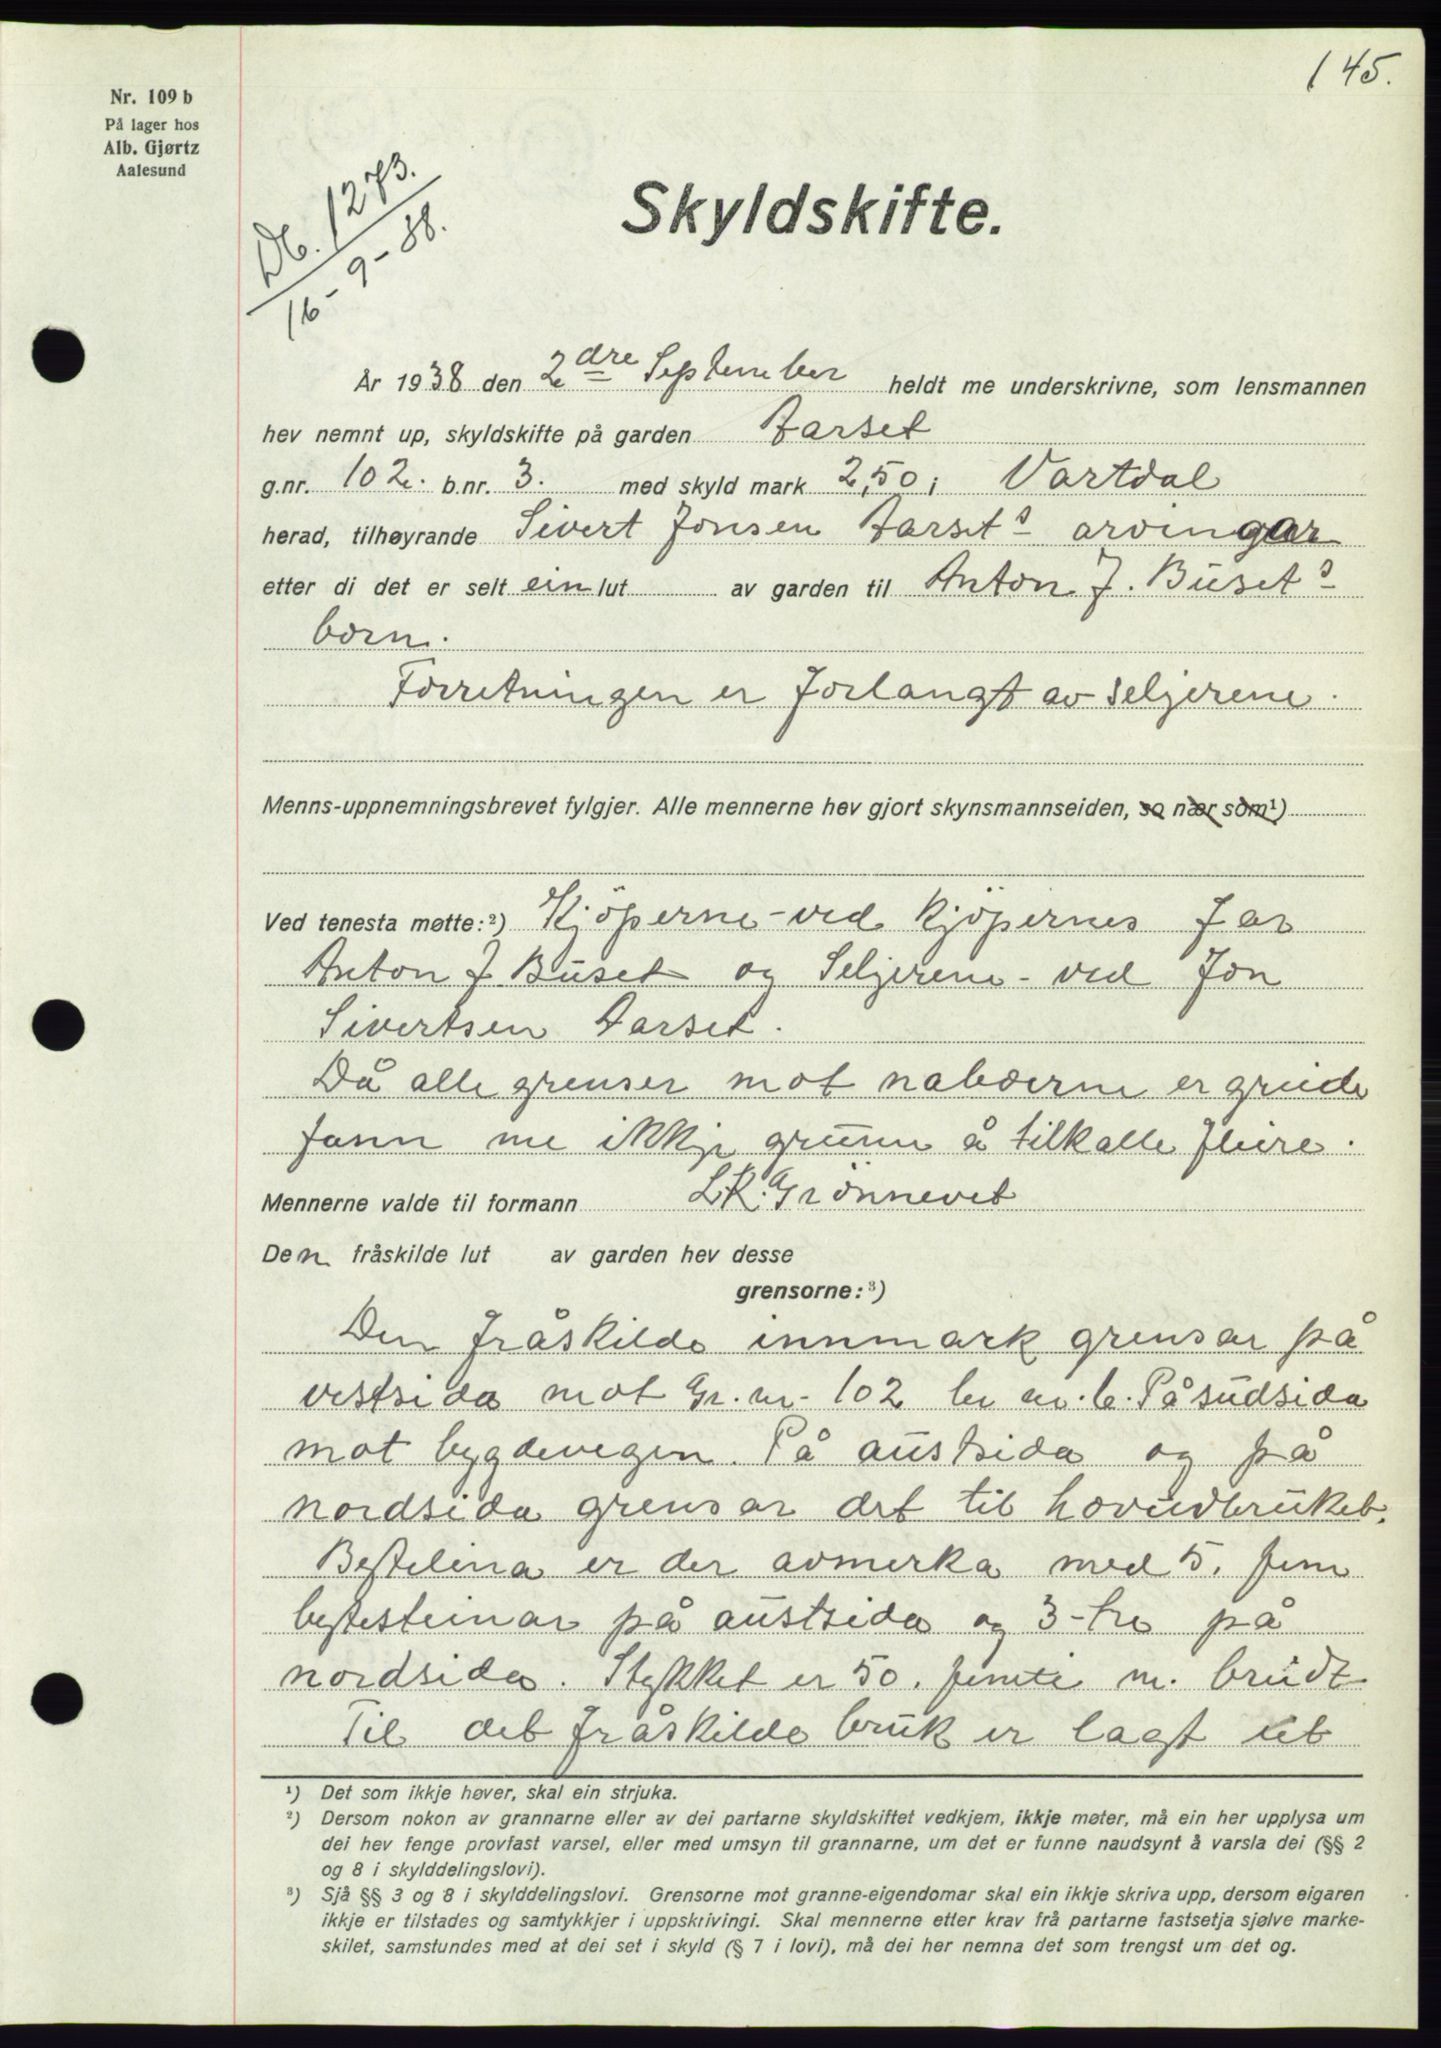 145.
Nr. 109 b
På lager hos
Alb. Gjørtz
Aalesund
Db. 1273.
16-9-38.
Skyldskifte.
År 1938 den 2dre September heldt me underskrivne, som lensmannen
hev nemnt up, skyldskifte på garden Aarset
g.nr. 102. b.nr. 3. med skyld mark 2,50 i Vartdal
herad, tilhøyrande Sivert Jonsen Aarsets arvingar
etter di det er selt ein lut av garden til Anton J. Busets
born.
Forretningen er forlangt av seljerene.
Menns-uppnemningsbrevet fylgjer. Alle mennerne hev gjort skynsmannseiden, so nær som¹)
Ved tenesta møtte:²) Kjöperne - ved kjöpernes far
Anton J Buset og Seljerene - ved Jon
Sivertsen Aarset.
Då alle grenser mot naboerne er greide
fann me ikkje grunn å tilkalle fleire.
Mennerne valde til formann L.K. Grönnevet
Den fråskilde lut av garden hev desse
grensorne:³)
Den fråskilde innmark grensar på
vestsida mot Gr. nr. 102 br nr. 6. På sudsida
mot bygdevegen. På austsida og på
nordsida grensar det til hovudbruket.
Bytelina er der avmerka med 5. fem
bytesteinar på austsida og 3-tre på
nordsida. Stykket er 50. femti m. breidt
Til det fråskilde bruk er lagt ut
¹) Det som ikkje høver, skal ein strjuka.
²) Dersom nokon av grannarne eller av dei partarne skyldskiftet vedkjem, ikkje møter, må ein her upplysa um
dei hev fenge provfast varsel, eller med umsyn til grannarne, um det er funne naudsynt å varsla dei (§§ 2
og 8 i skylddelingslovi).
³) Sjå §§ 3 og 8 i skylddelingslovi. Grensorne mot granne-eigendomar skal ein ikkje skriva upp, dersom eigaren
ikkje er tilstades og samtykkjer i uppskrivingi. Skal mennerne etter krav frå partarne fastsetja sjølve marke-
skilet, samstundes med at dei set i skyld (§ 7 i lovi), må dei her nemna det som trengst um det og.